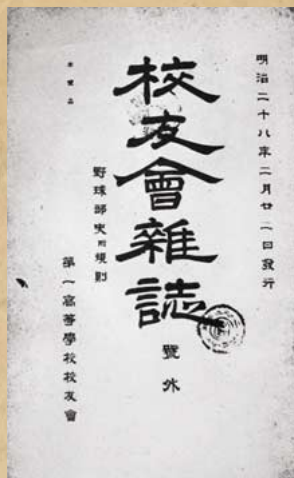 明治二十八年二月廿二日發行
校友會雜誌
號外
野球部史附規則
第一高等學校校友會
非賣品